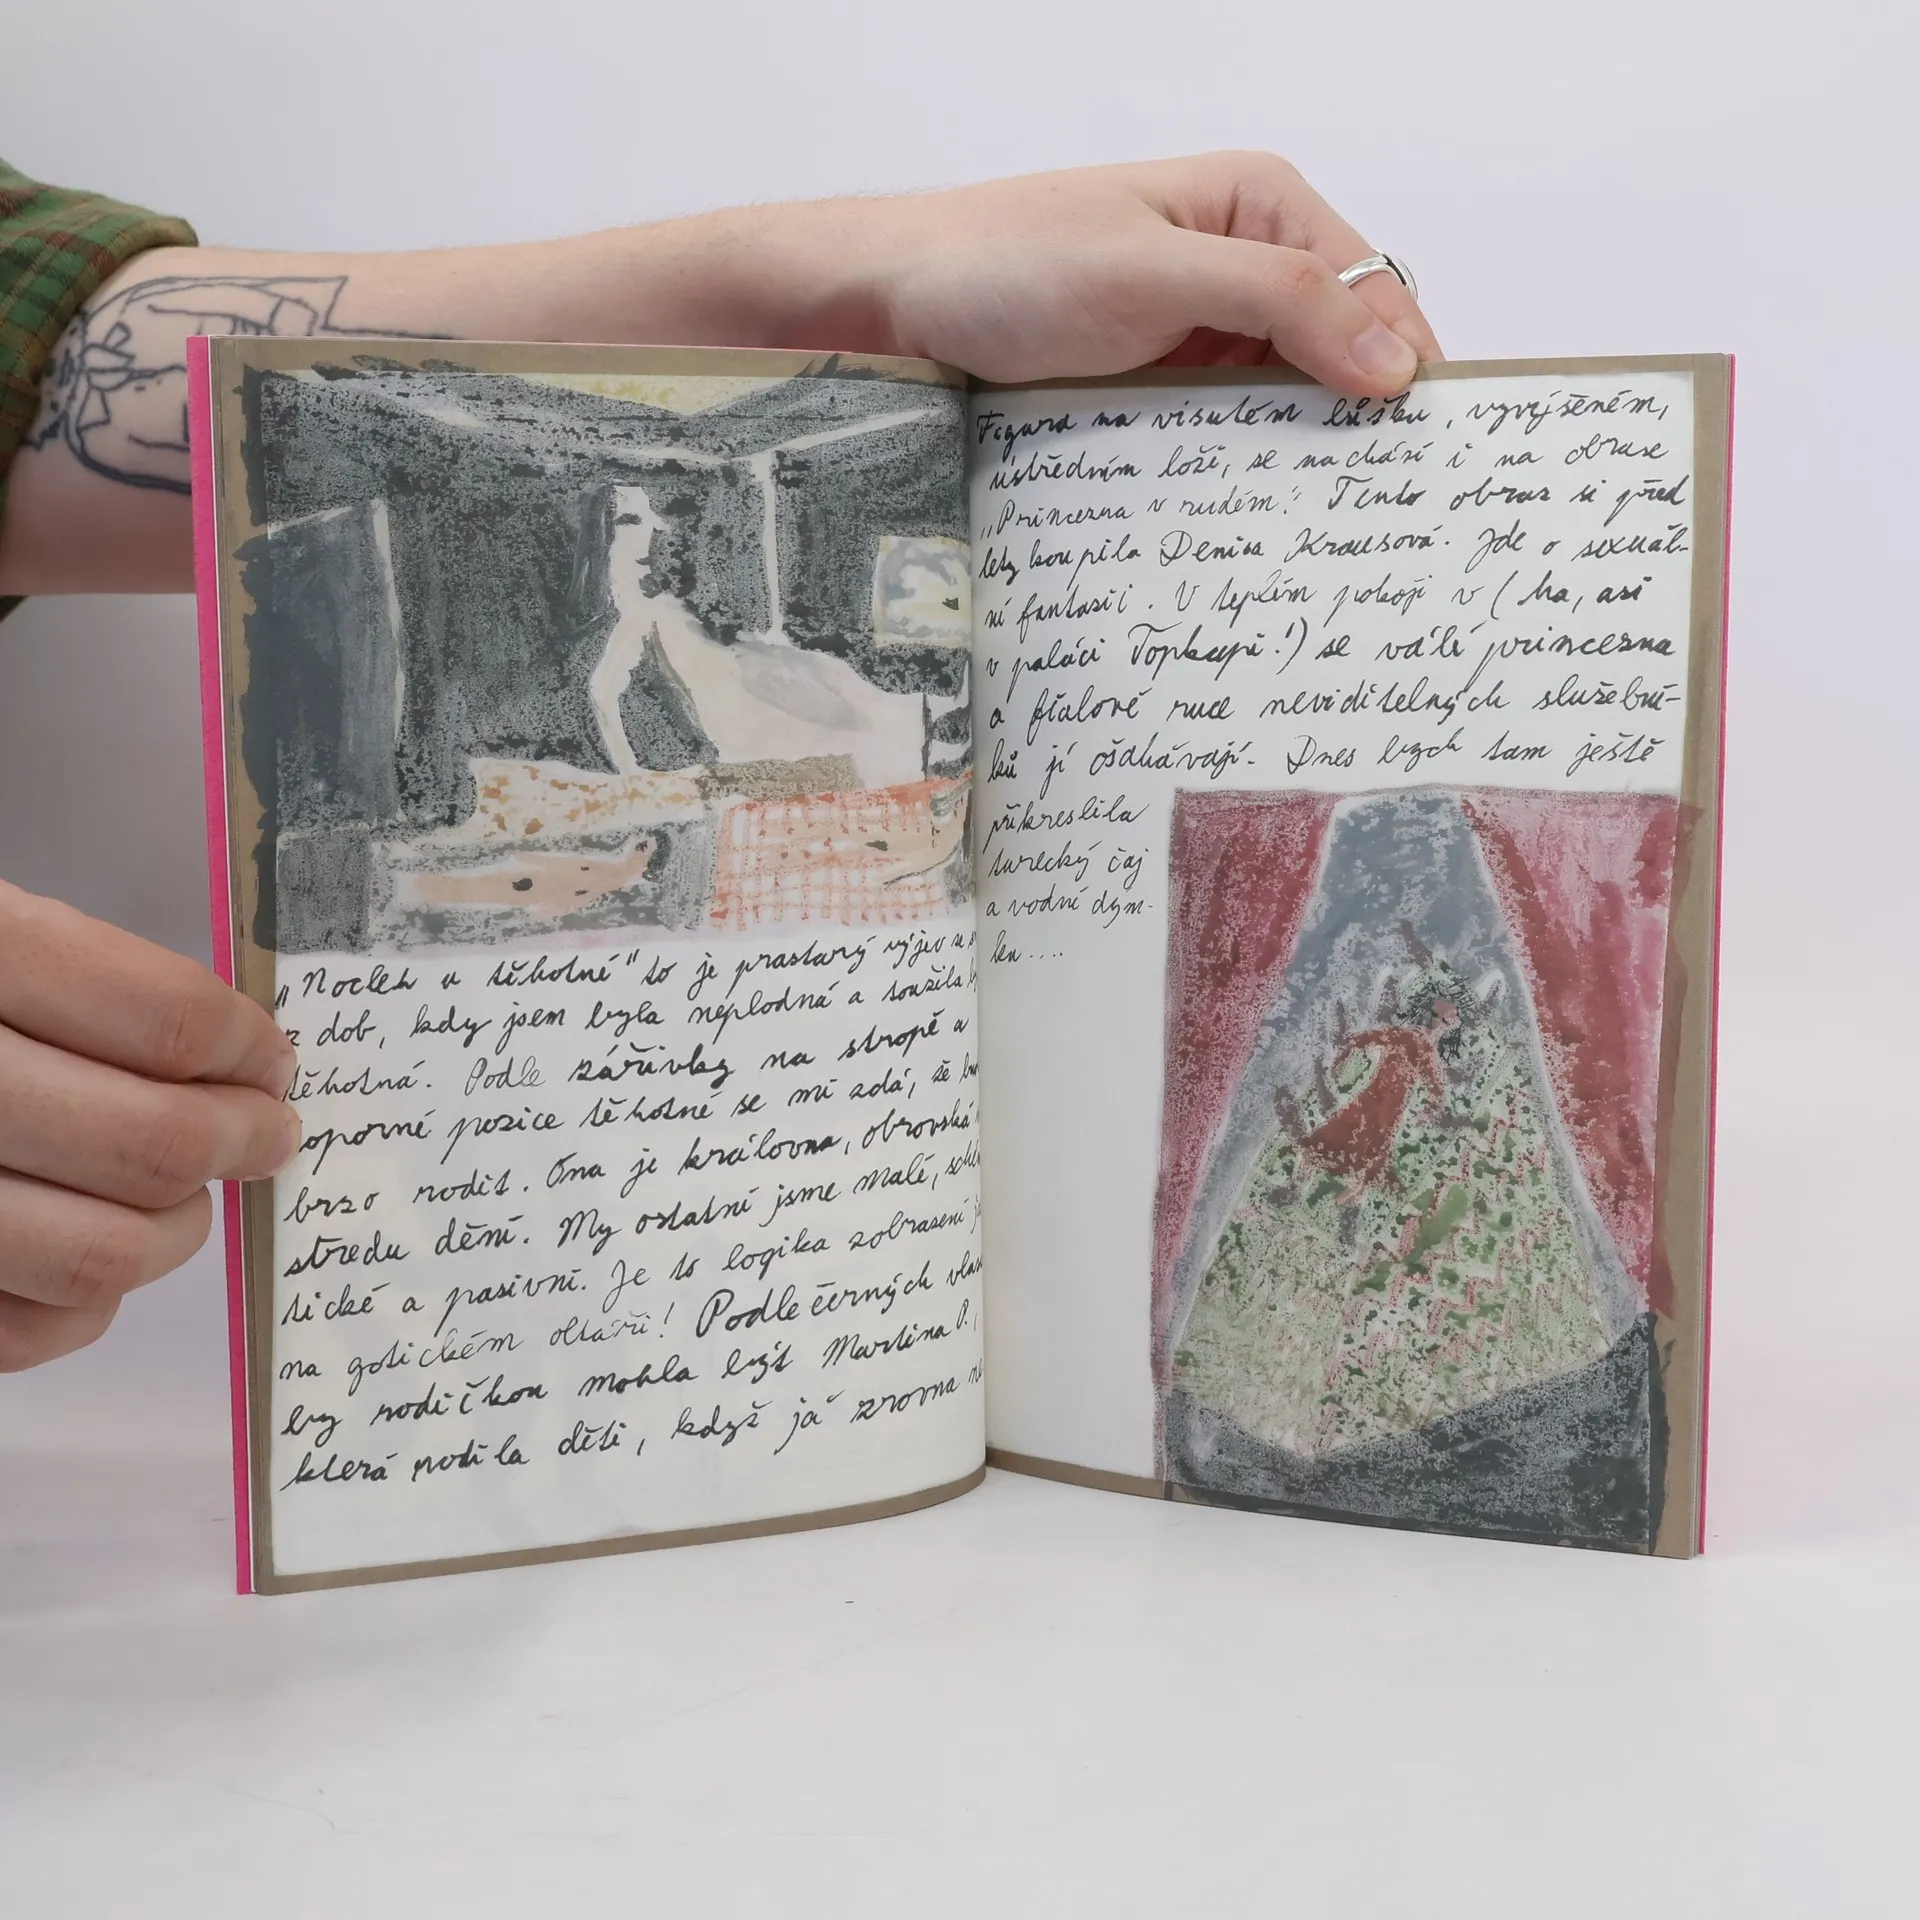 „Nocleh u těhotné" to je prastarý výjev se
z dob, kdy jsem byla neplodná a toužila
těhotná. Podle zářivky na stropě a
oporné pozice těhotné se mi zdá, že
brzo rodit. Ona je královna, obrovská
středu dění. My ostatní jsme malé,
tické a pasivní. Je to logika zobrazení
na gotickém oltáři! Podle černých
by rodičkou mohla být Martina P.,
která rodila děti, když já zrovna
Figura na visutém lůžku, vyvýšeném,
ústředním loži, se nachází i na obraze
„Princezna v rudém". Tento obraz si před
lety koupila Denisa Krausová. Jde o sexuál-
ní fantazii. V teplém pokoji v (ha, asi
v paláci Topkapi!) se válí princezna
a fialové ruce neviditelných služební-
ků jí ošahávají. Dnes bych tam ještě
přikreslila
turecký čaj
a vodní dým-
ku....